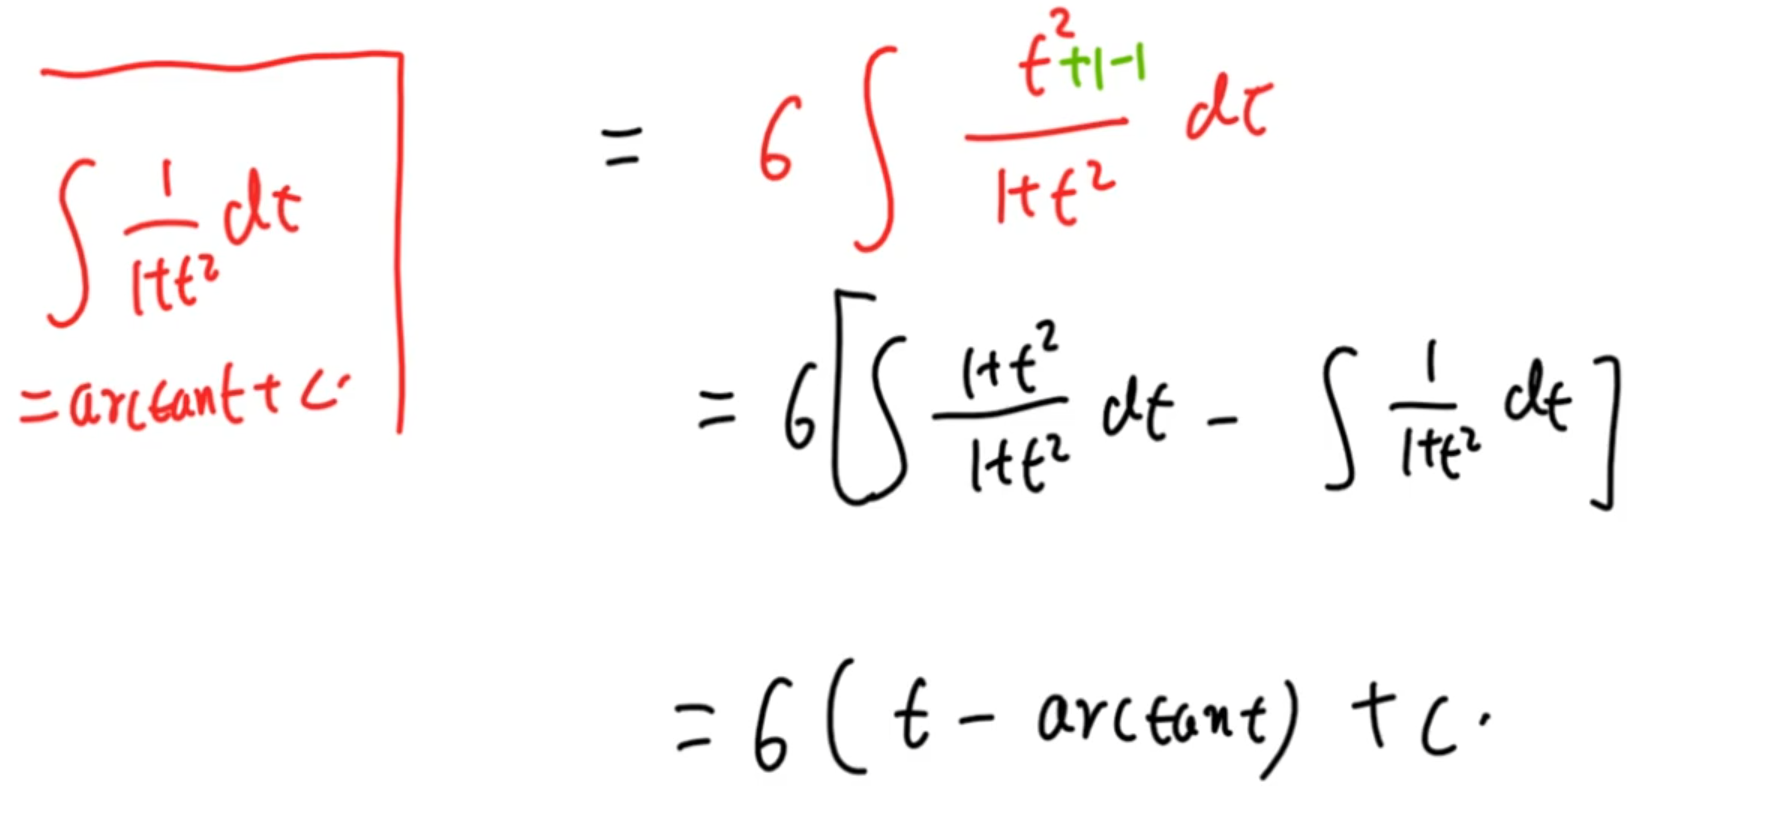 ∫ 1/(1+t²) dt
= arctant + C.
= 6 ∫ (t²+1-1)/(1+t²) dt
= 6[∫ (1+t²)/(1+t²) dt - ∫ 1/(1+t²) dt]
= 6(t - arctant) + C.